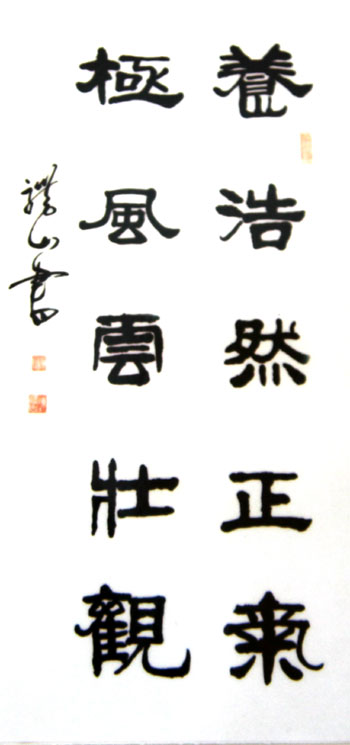 養浩然正氣
極風雲壯觀
山書